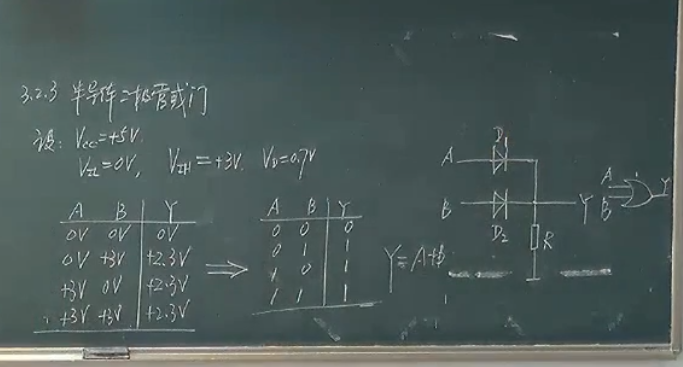 3.2.3 半导体二极管或门
设: Vcc=+5V.
VIL=0V, VIH=+3V. VD=0.7V
A B Y
0V 0V 0V
0V +3V +2.3V
+3V 0V +2.3V
+3V +3V +2.3V
⇒
A B Y
0 0 0
0 1 1
1 0 1
1 1 1
Y=A+B
D1
A
B
D2
R
Y
A
B
Y